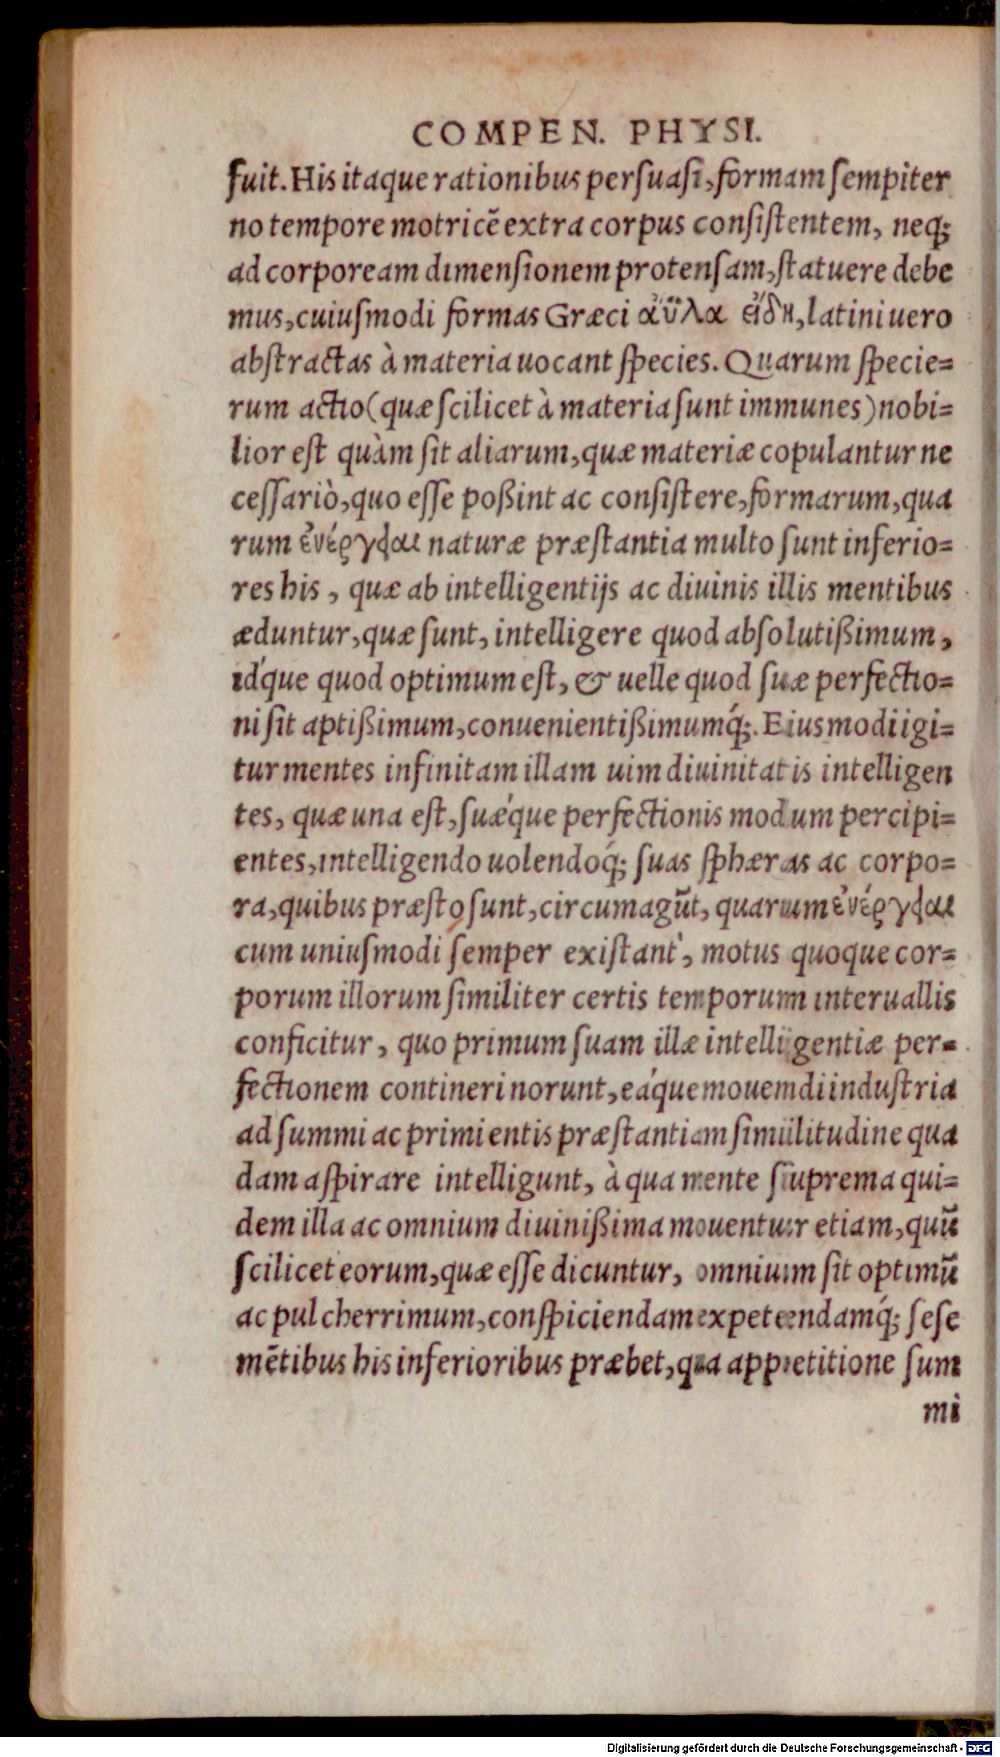 COMPEN. PHYSI.
fuit. His itaque rationibus persuasi, formam sempiter
no tempore motricē extra corpus consistentem, neq;
ad corpoream dimensionem protensam, statuere debe
mus, cuiusmodi formas Græci ἀΰλα εἴδη, latini uero
abstractas à materia uocant species. Quarum specie=
rum actio (quæ scilicet à materia sunt immunes) nobi=
lior est quàm sit aliarum, quæ materiæ copulantur ne
cessariò, quo esse poßint ac consistere, formarum, qua
rum ἐνέργειαι naturæ præstantia multo sunt inferio=
res his, quæ ab intelligentijs ac diuinis illis mentibus
æduntur, quæ sunt, intelligere quod absolutißimum,
id'que quod optimum est, & uelle quod suæ perfectio=
ni sit aptißimum, conuenientißimumq́;. Eiusmodi igi=
tur mentes infinitam illam uim diuinitatis intelligen
tes, quæ una est, suǽque perfectionis modum percipi=
entes, intelligendo uolendoq́; suas sphæras ac corpo=
ra, quibus præsto sunt, circumagūt, quarum ἐνέργειαι
cum uniusmodi semper existant, motus quoque cor=
porum illorum similiter certis temporum interuallis
conficitur, quo primum suam illæ intelligentiæ per=
fectionem contineri norunt, eáque mouendi industria
ad summi ac primi entis præstantiam similitudine qua
dam aspirare intelligunt, à qua mente suprema qui=
dem illa ac omnium diuinißima mouentur etiam, quū
scilicet eorum, quæ esse dicuntur, omnium sit optimū
ac pulcherrimum, conspiciendam expetendamq́; sese
mētibus his inferioribus præbet, qua appetitione sum
mi
Digitalisierung gefördert durch die Deutsche Forschungsgemeinschaft - DFG